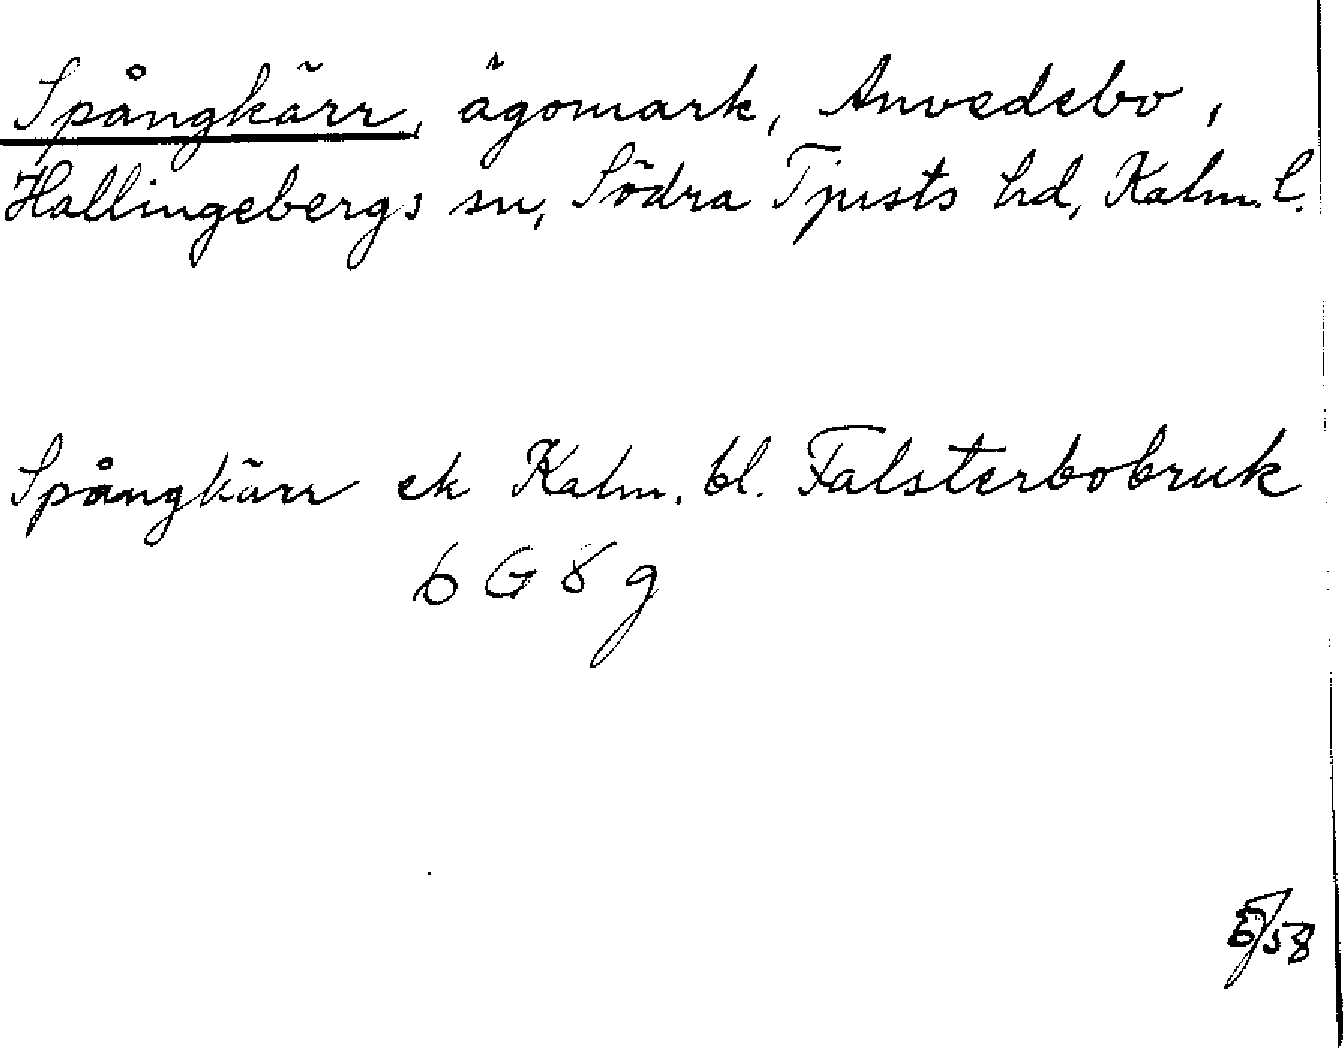 Spångkärr, ägomark, Anvedebo,
Hallingebergs sn, Södra Tjusts hd, Kalm. l.
Spångkärr ek Kalm. bl. Falsterbobruk
6 G 8 g
/58